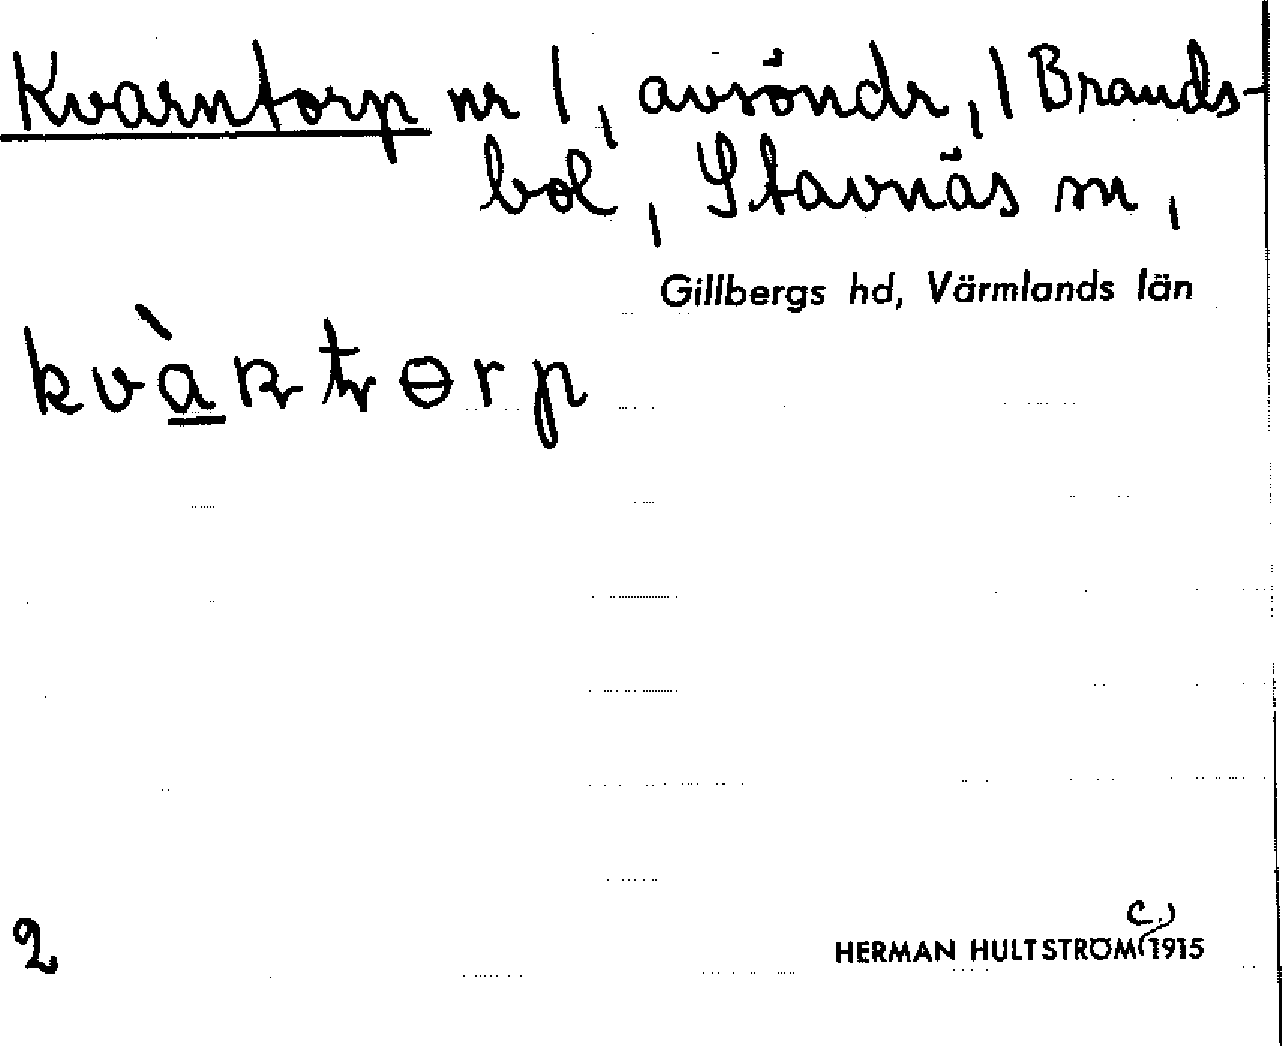 Kvarntorp nr 1, avsöndr, 1 Brands-
bol, Stavnäs sn,
Gillbergs hd, Värmlands län
2
HERMAN HULTSTRÖM (c.) 1915